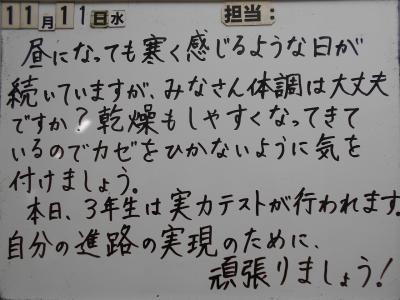 11月11日水 担当:
昼になっても寒く感じるような日が
続いていますが、みなさん体調は大丈夫
ですか?乾燥もしやすくなってきて
いるのでカゼをひかないように気を
付けましょう。
本日、3年生は実力テストが行われます。
自分の進路の実現のために、
頑張りましょう!